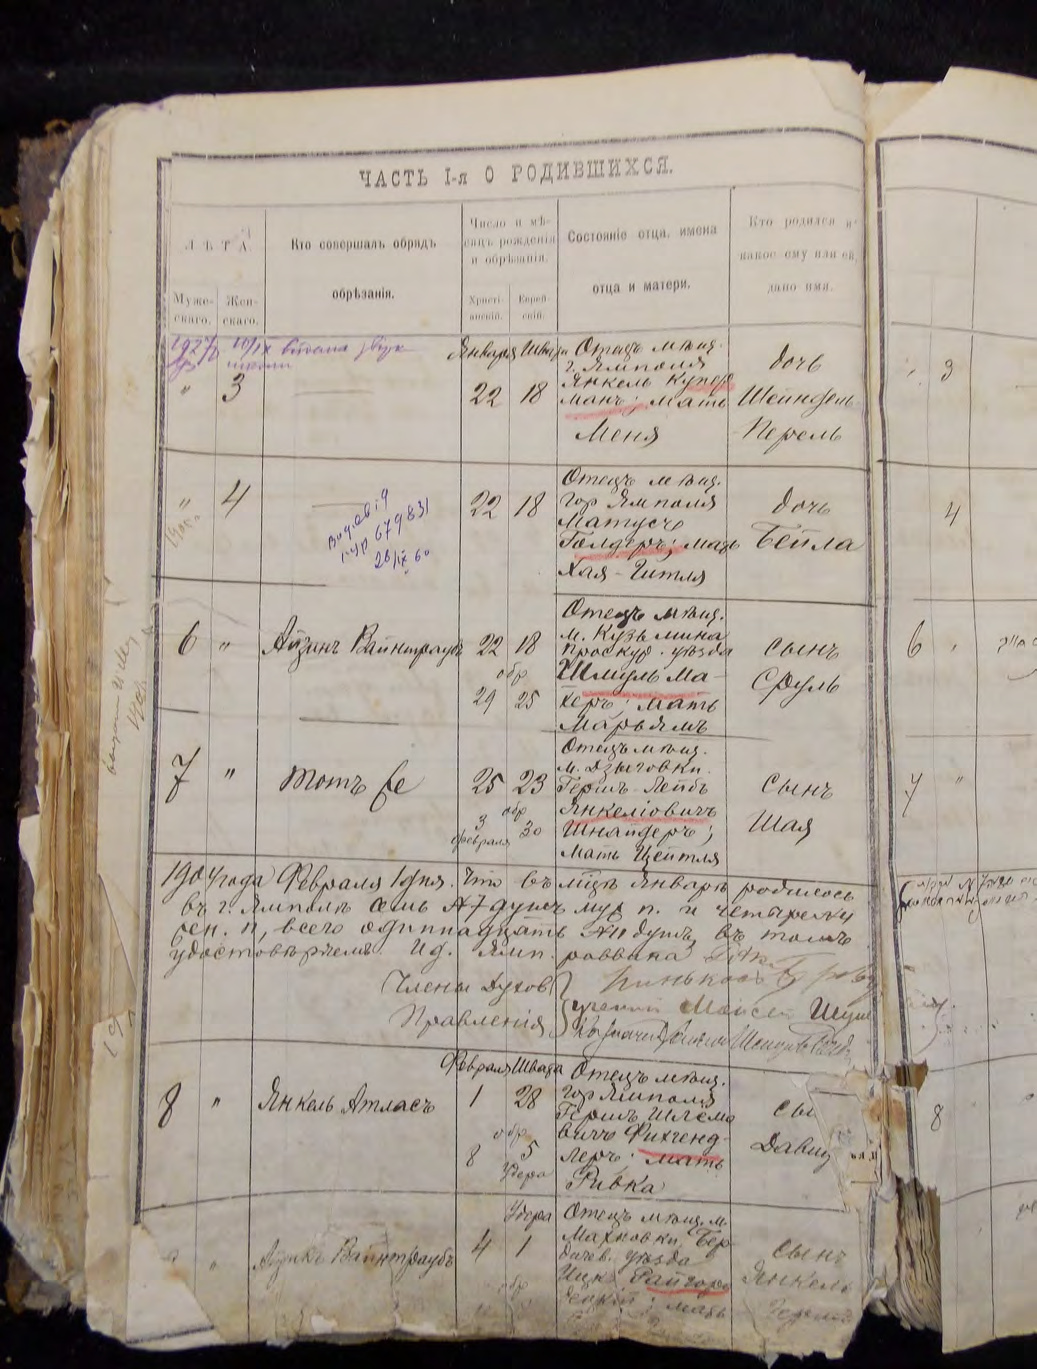 ЧАСТЬ I-я О РОДИВШИХСЯ.
ЛѢТА.
Муже-
скаго.
Жен-
скаго.
Кто совершалъ обрядъ
обрѣзанія.
Число и мѣ-
сяцъ рожденія
и обрѣзанія.
Христі-
анскій.
Еврей-
скій.
Состояніе отца, имена
отца и матери.
Кто родился и
какое ему или ей
дано имя.
1927
" 3
Января
22 18
Отецъ мѣщ.
г. Ямполя
Янкель Купер
манъ; мать
Меня
дочь
Шейндель
Перель
3
" 4
679831
28/IX 60
22 18
Отецъ мѣщ.
гор Ямполя
Матусъ
Голдеръ; мать
Хая-Гитля
дочь
Бейла
4
6 "
Айзикъ Вайнтраубъ
22 18
обр
29 25
Отецъ мѣщ.
м. Кузьмина
Проскур. уѣзда
Шмуль Ма-
херъ; мать
Марьямъ
сынъ
Сруль
6
7 "
тотъ же
25 23
обр
3 30
февраля
Отецъ мѣщ.
м. Дзыговки
Гершъ-Лейбъ
Янкеліовичъ
Шнайдеръ;
мать Цейтля
сынъ
Шая
7 "
1904 года Февраля 1 дня. Что въ мѣс. Январѣ родилось
въ г. Ямполѣ семь №7 душъ муж п. и четыре №4
жен. п, всего одиннадцать №11 душъ, въ томъ
удостовѣряемъ. И д. Ямп. раввина
Члены Духов.
Правленія
ученый Мойсей
8 "
Янкель Атласъ
Февраля Швата
1 28
обр
8 5
Удера
Отецъ мѣщ.
гор Ямполя
Гершъ Шлемо
вичъ Фихтенд-
леръ; мать
Ривка
сы
Давид
8
"
Вайнтраубъ
Удера
4 1
обр
Отецъ мѣщ. м.
Махновки, Бер
дичев. уѣзда
Ицко Райгоро
децкій; мать
сынъ
Янкель